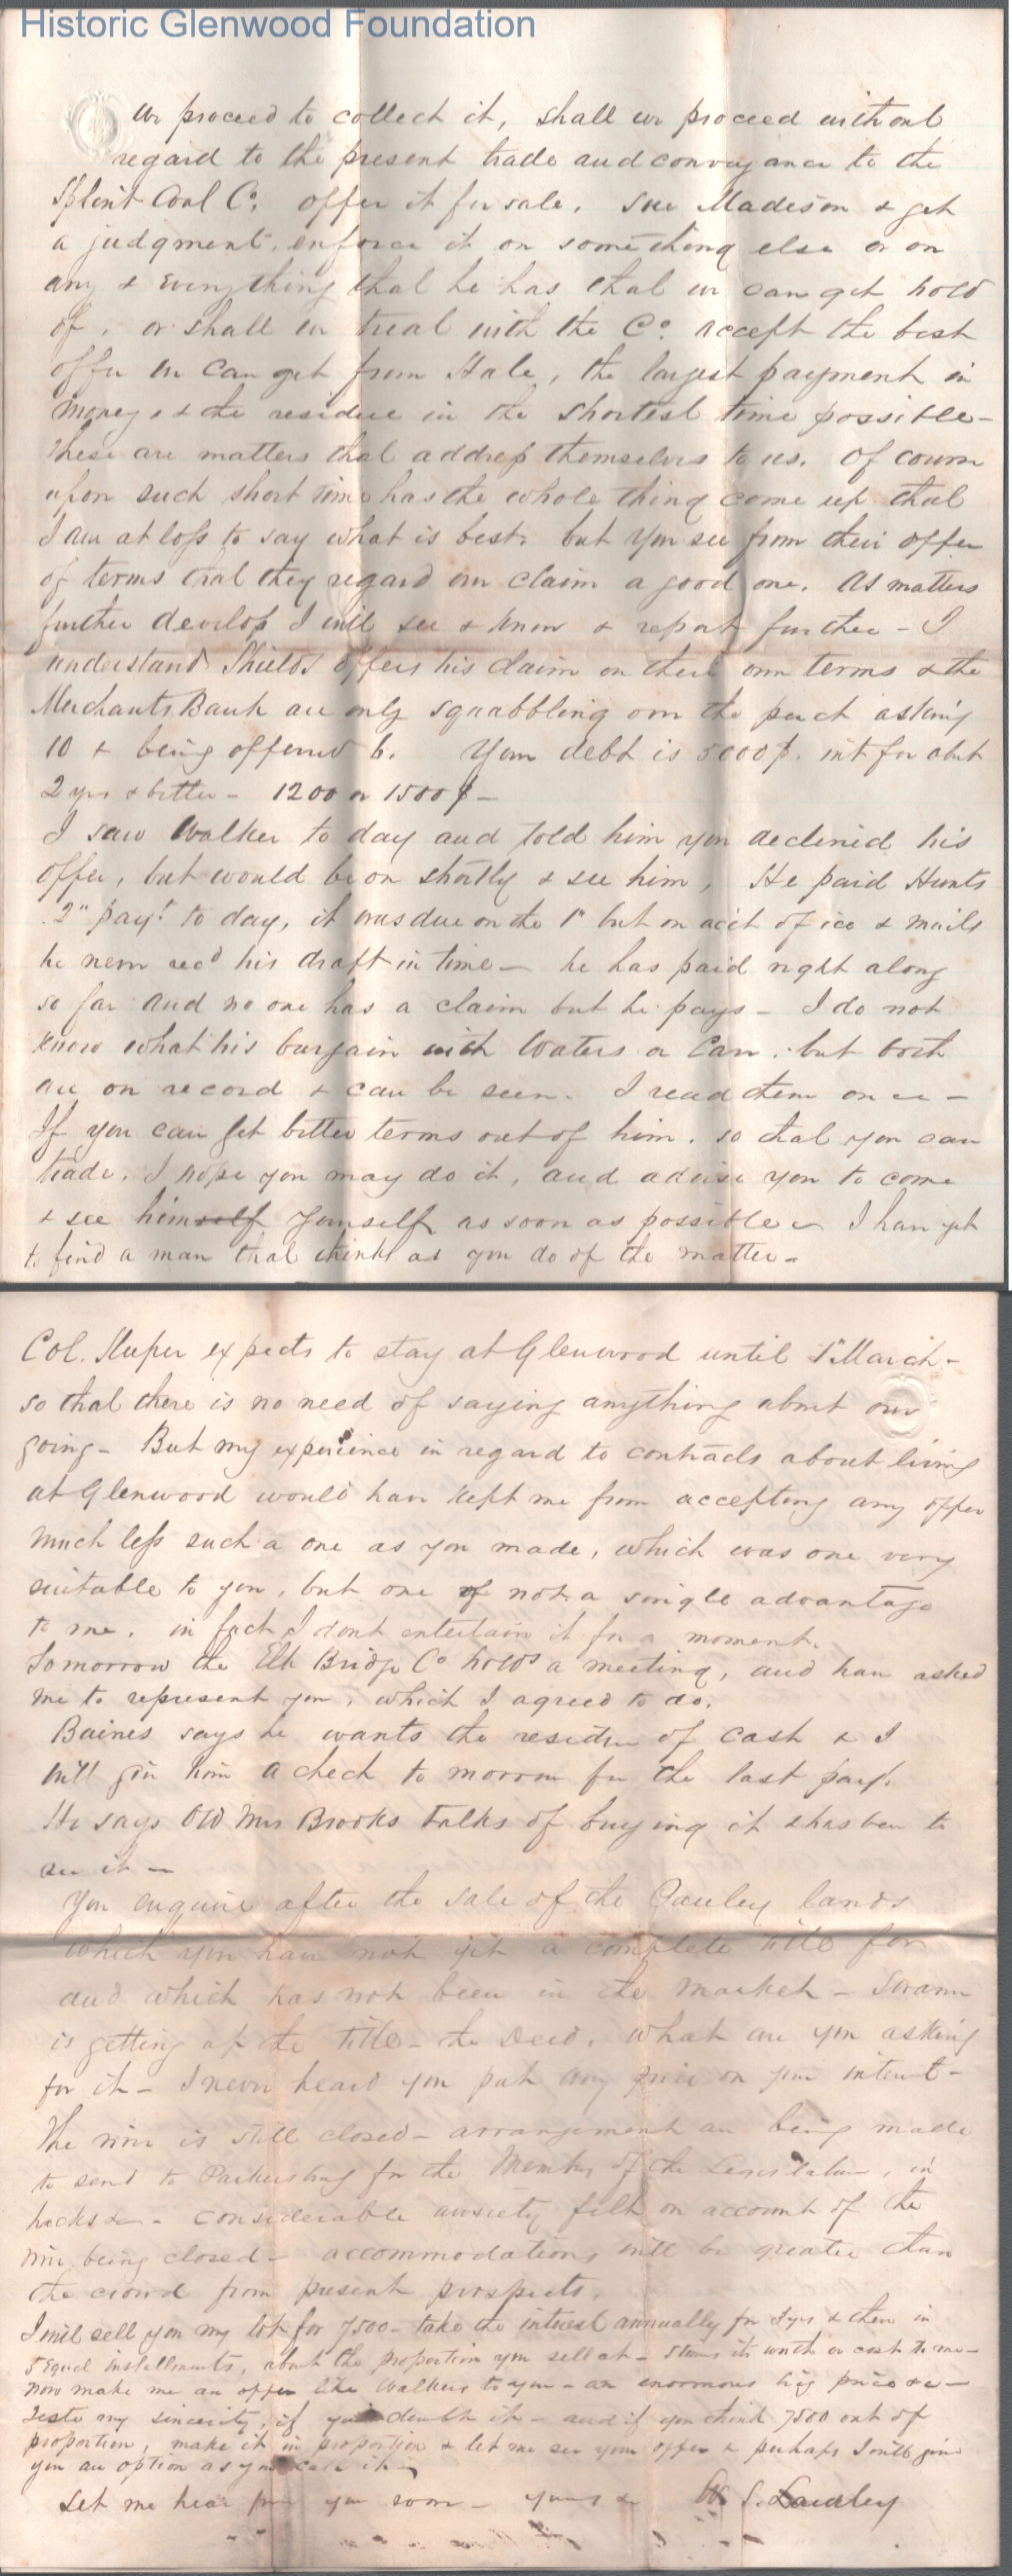 Historic Glenwood Foundation
we proceed to collect it, shall we proceed without
regard to the present trade and conveyance to the
Splint Coal Co. offer it for sale. sue Madison & get
a judgment, enforce it on something else or on
any & everything that he has that we can get hold
of, or shall we treat with the Co. accept the best
offer we can get from Hale, the largest payment in
money, & the residue in the shortest time possible -
these are matters that address themselves to us. Of course
upon such short time has the whole thing come up that
I am at loss to say what is best. but you see from their offer
of terms that they regard our claim a good one. As matters
further develop I will see & know & report further - I
understand Shields offers his claim on their own terms & the
Merchants Bank are only squabbling over the per ct asking
10 & being offered 6. Your debt is 5000$. int for abut
2 yrs & better - 1200 or 1500$ -
I saw Walker to day and told him you declined his
offer, but would be on shortly & see him, He paid Hunts
2" payt. to day, it was due on the 1st but on acct of ice & mails
he never recd his draft in time - he has paid right along
so far and no one has a claim but he pays - I do not
know what his bargain with Waters or Carr. but both
are on record & can be seen. I read them once -
If you can get better terms out of him. so that you can
trade. I hope you may do it, and advise you to come
& see himself yourself as soon as possible - I have yet
to find a man that thinks as you do of the matter -
Col. expects to stay at Glenwood until 1st March -
so that there is no need of saying anything about our
going - But my experience in regard to contracts about living
at Glenwood would have kept me from accepting any offer
much less such a one as you made, which was one very
suitable to you, but one of not a single advantage
to me. in fact I dont entertain it for a moment.
Tomorrow the Elk Bridge Co holds a meeting, and have asked
me to represent you, which I agreed to do.
Baines says he wants the residue of cash & I
will give him a check to morrow for the last payt.
He says Old Mrs Brooks talks of buying it & has been to
see it -
You enquire after the sale of the Gauley lands
which you have not yet a complete title for
and which has not been in the market - Swann
is getting up the title - the Deed. What are you asking
for it - I never heard you put any price on your interest -
The river is still closed - arrangements are being made
to send to Parkersburg for the Members of the Legislature, in
hacks &c - considerable anxiety felt on account of the
river being closed - accommodations will be greater than
the crowd from present prospects.
I will sell you my lot for 7500 - take the interest annually for yrs & then in
5 equal installments, about the proportion you sell at - its worth or cost to me -
now make me an offer like Walkers to you - an enormous big price &c -
Teste my sincerity, if you doubt it - and if you think 7500 out of
proportion, make it in proportion & let me see your offer & perhaps I will give
you an option as you call it -
Let me hear from you soon - yours &c W. S. Laidley